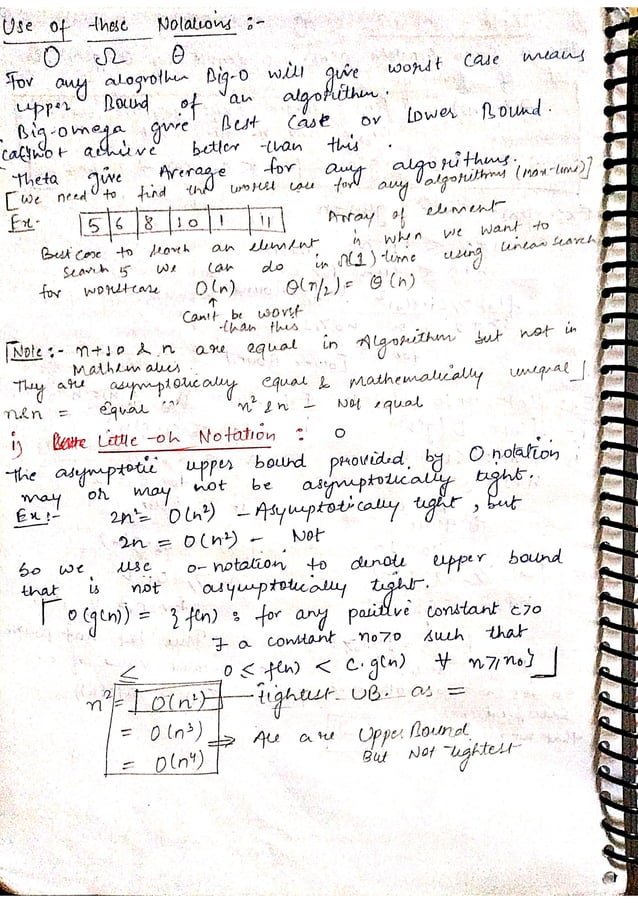 Use of these Notations :-
O Ω θ
For any alogrothm Big-O will give worst case means
upper Bound of an algorithm.
Big-omega give Best Case or Lower Bound.
cannot achieve better than this.
Theta give Average for any algorithms.
[We need to find the worst case for any algorithms (max-time)]
Ex- 5 6 8 10 1 11 Array of element
Best case to search an element is when we want to
search 5 we can do in Ω(1)-time using linear search
for worstcase O(n) θ(n/2) = θ(n)
↑
Can't be worst
than this
Note :- n+10 & n are equal in Algorithm but not in
Mathematics
They are asymptotically equal & Mathematically unequal
n&n = Equal n² & n - Not equal
i) Little-oh Notation : o
The asymptotic upper bound provided by O notation
may or may not be asymptotically tight.
Ex:- 2n² = O(n²) - Asymptotically tight, but
2n = O(n²) - Not
So we use o-notation to denote upper bound
that is not asymptotically tight.
O(g(n)) = { f(n) : for any positive constant c>0
∃ a constant n₀>0 such that
0 ≤ f(n) < c.g(n) ∀ n≥n₀}
≤
n² = O(n²) - Tightest UB. as =
= O(n³)
= O(n⁴) ⇒ All are Upper Bound
But Not tightest